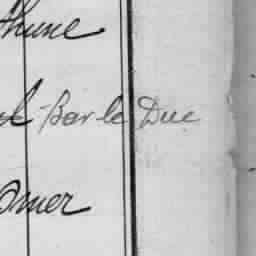 thune
Bar le Duc
Omer